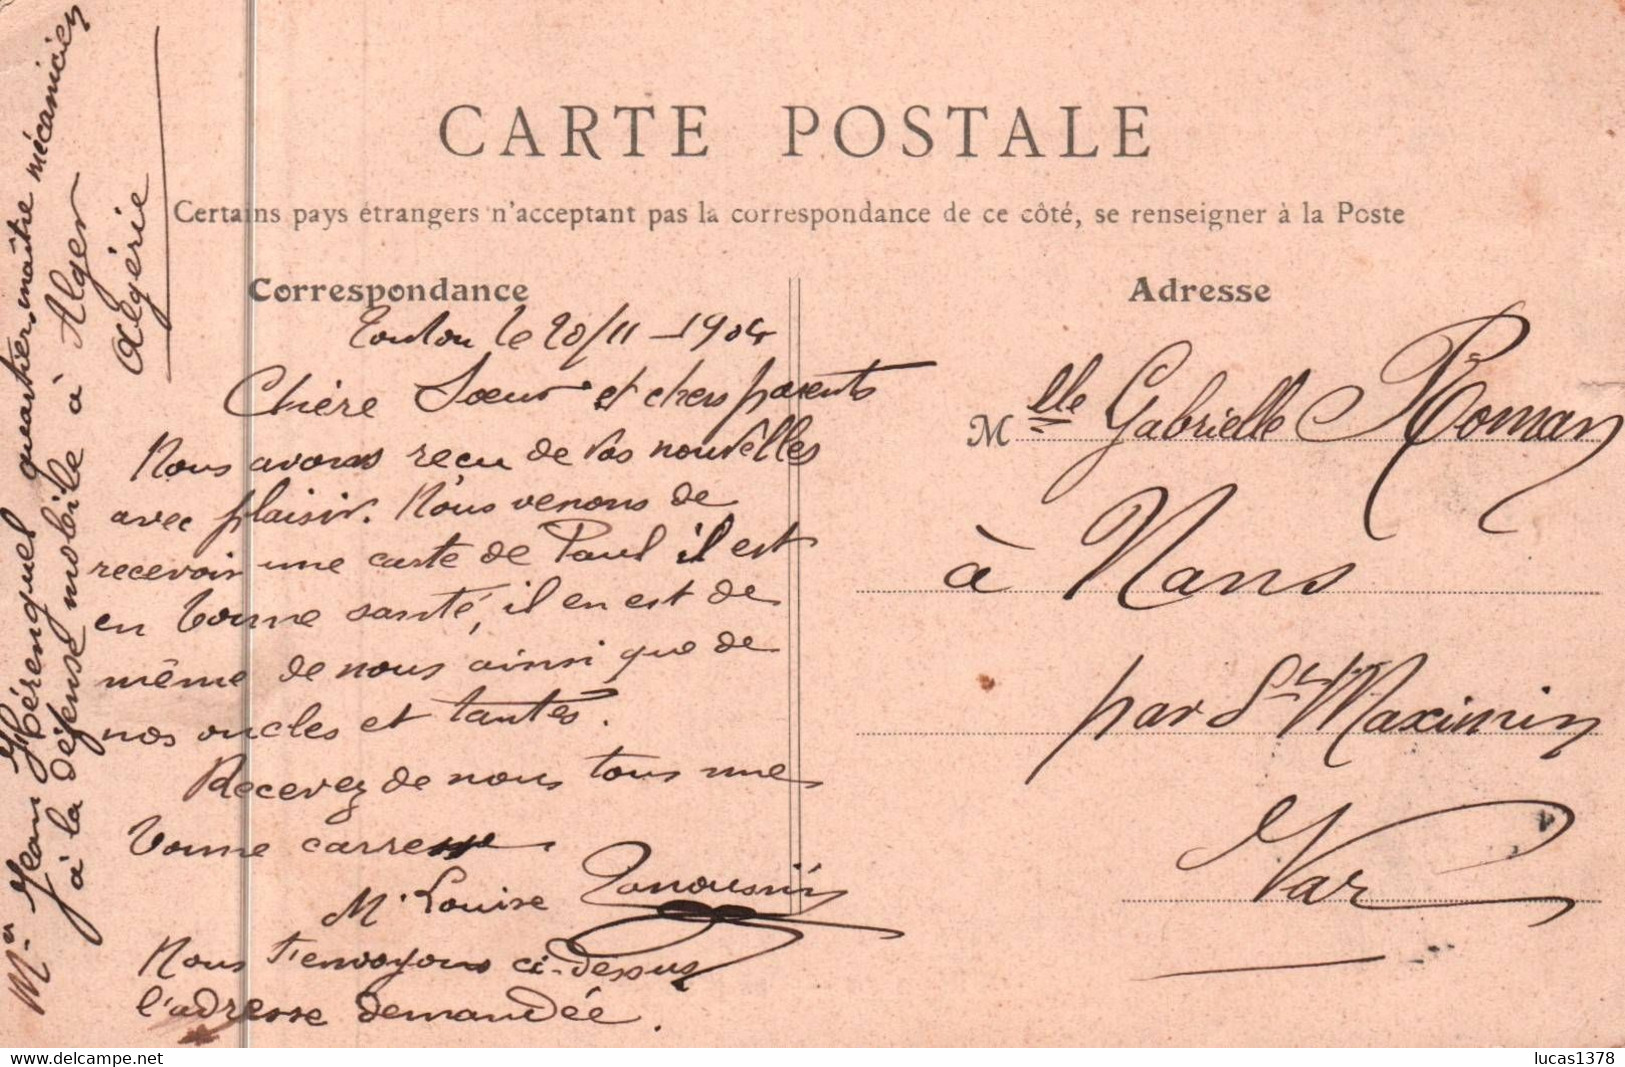 CARTE POSTALE
Certains pays étrangers n'acceptant pas la correspondance de ce côté, se renseigner à la Poste
Correspondance
Toulon le 20/11 - 1904
Chère Sœur et chers parents
Nous avons recu de vos nouvelles
avec plaisir. Nous venons de
recevoir une carte de Paul il est
en bonne santé, il en est de
même de nous ainsi que de
nos oucles et tantes.
Recevez de nous tous une
bonne carresse
M. Louise
Nous t'envoyons ci-dessus
l'adresse demandée.
Mr Jean Hérenguel quartier-maître mécanicien
à la défense mobile à Alger
Algérie
Adresse
Mlle Gabrielle Roman
à Nans
par St Maximin
Var
lucas1378